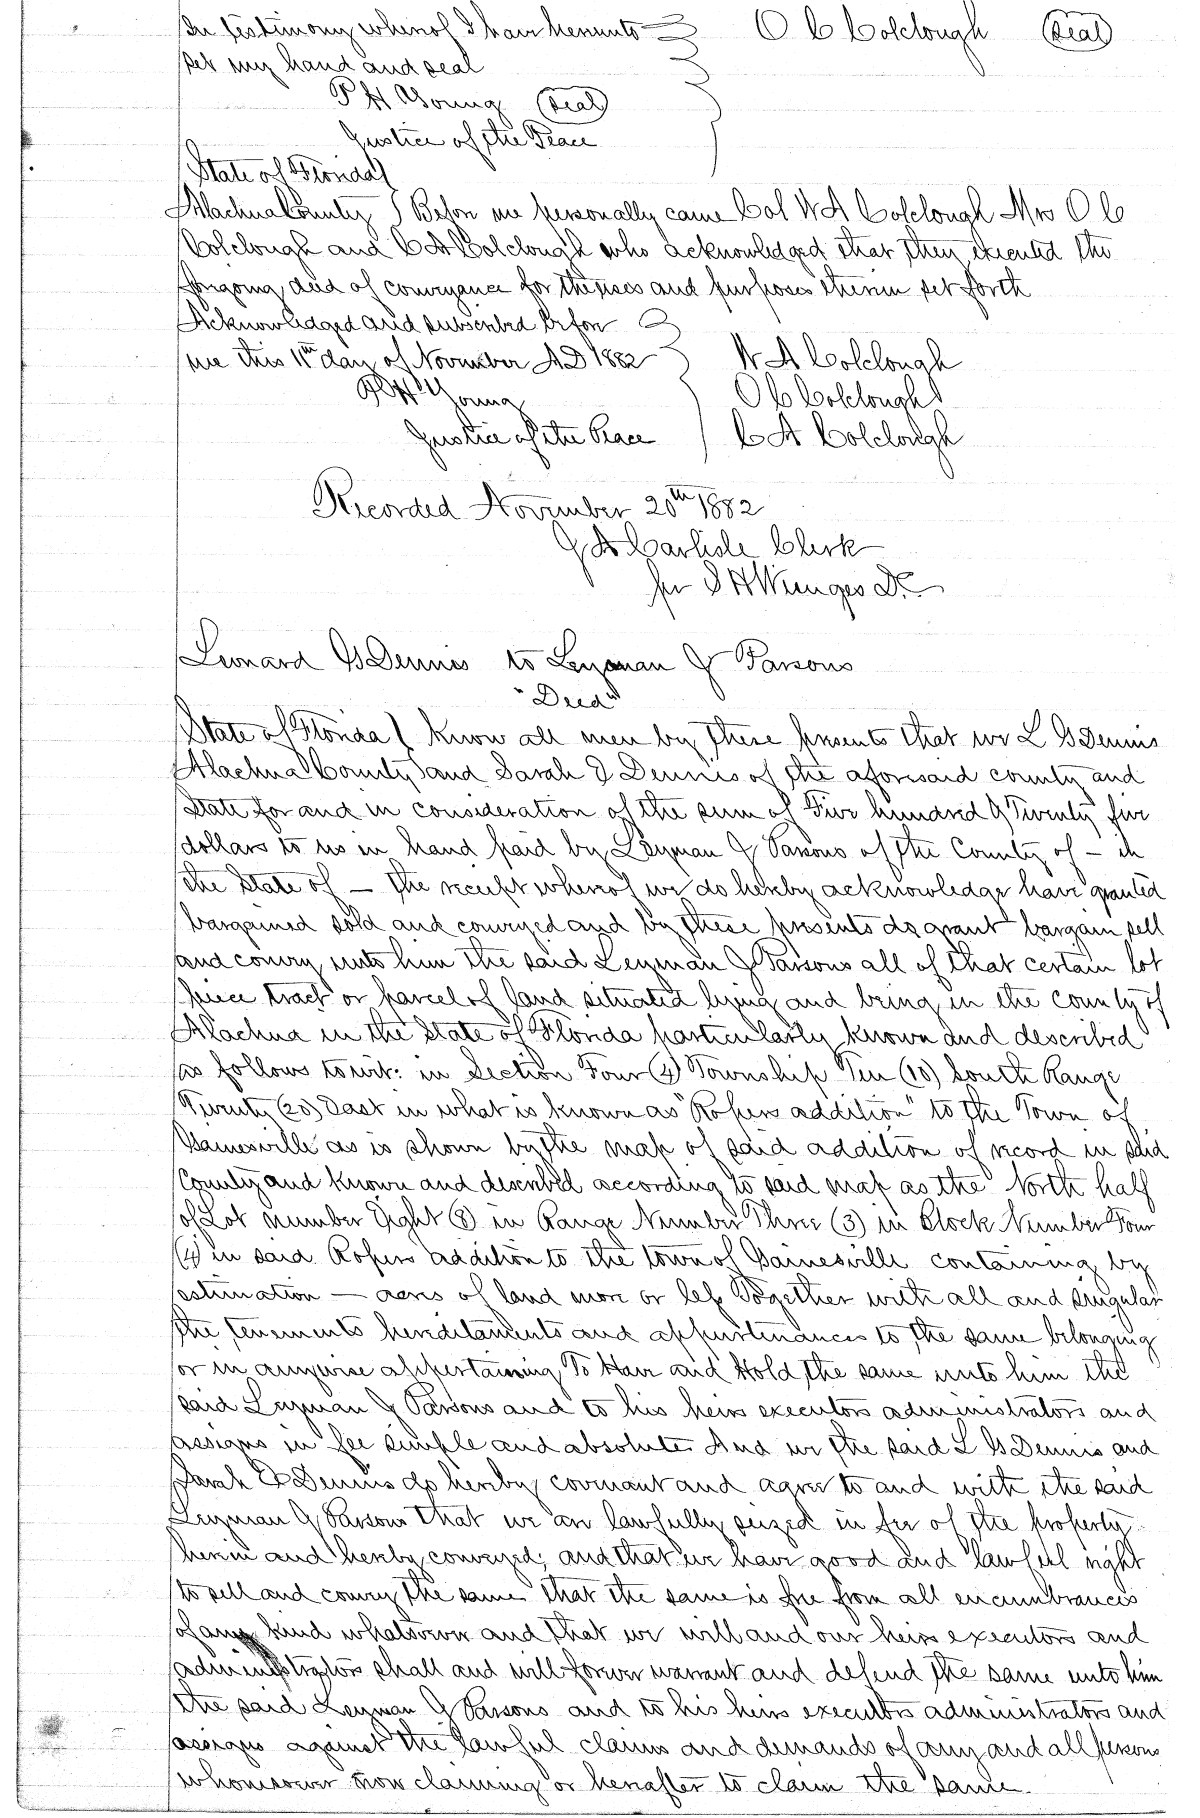 In testimony whereof I have hereunto O C Colclough (Seal)
set my hand and seal
P H Young (Seal)
Justice of the Peace
State of Florida
Alachua County } Before me personally came Col W A Colclough Mrs O C
Colclough and C A Colclough who acknowledged that they executed the
foregoing deed of conveyance for the uses and purposes therein set forth
Acknowledged and subscribed before
me this 11th day of November AD 1882 W A Colclough
P H Young O C Colclough
Justice of the Peace C A Colclough
Recorded November 20th 1882
J A Carlisle Clerk
per I H Wienges D.C.
Leonard G Dennis to Leyman G Parsons
"Deed"
State of Florida } Know all men by these presents that we L G Dennis
Alachua County } and Sarah J Dennis of the aforesaid county and
State for and in consideration of the sum of Five hundred & Twenty five
dollars to us in hand paid by Leyman G Parsons of the County of – in
the State of – the receipt whereof we do hereby acknowledge have granted
bargained sold and conveyed and by these presents do grant bargain sell
and convey unto him the said Leyman G Parsons all of that certain lot
piece tract or parcel of land situated lying and being in the county of
Alachua in the State of Florida particularly known and described
as follows towit: in Section Four (4) Township Ten (10) South Range
Twenty (20) East in what is known as "Ropers addition" to the Town of
Gainesville as is shown by the map of said addition of record in said
County and known and described according to said map as the North half
of Lot number Eight (8) in Range Number Three (3) in Block Number Four
(4) in said Ropers addition to the town of Gainesville containing by
estimation – acres of land more or less Together with all and singular
the tenements hereditaments and appurtenances to the same belonging
or in anywise appertaining To Have and Hold the same unto him the
said Leyman G Parsons and to his heirs executors administrators and
assigns in fee simple and absolute And we the said L G Dennis and
Sarah Dennis do hereby covenant and agree to and with the said
Leyman G Parsons that we are lawfully seized in fee of the property
herein and hereby conveyed; and that we have good and lawful right
to sell and convey the same that the same is free from all encumbrances
of any kind whatsoever and that we will and our heirs executors and
administrators shall and will forever warrant and defend the same unto him
the said Leyman G Parsons and to his heirs executors administrators and
assigns against the lawful claims and demands of any and all persons
whomsoever now claiming or hereafter to claim the same